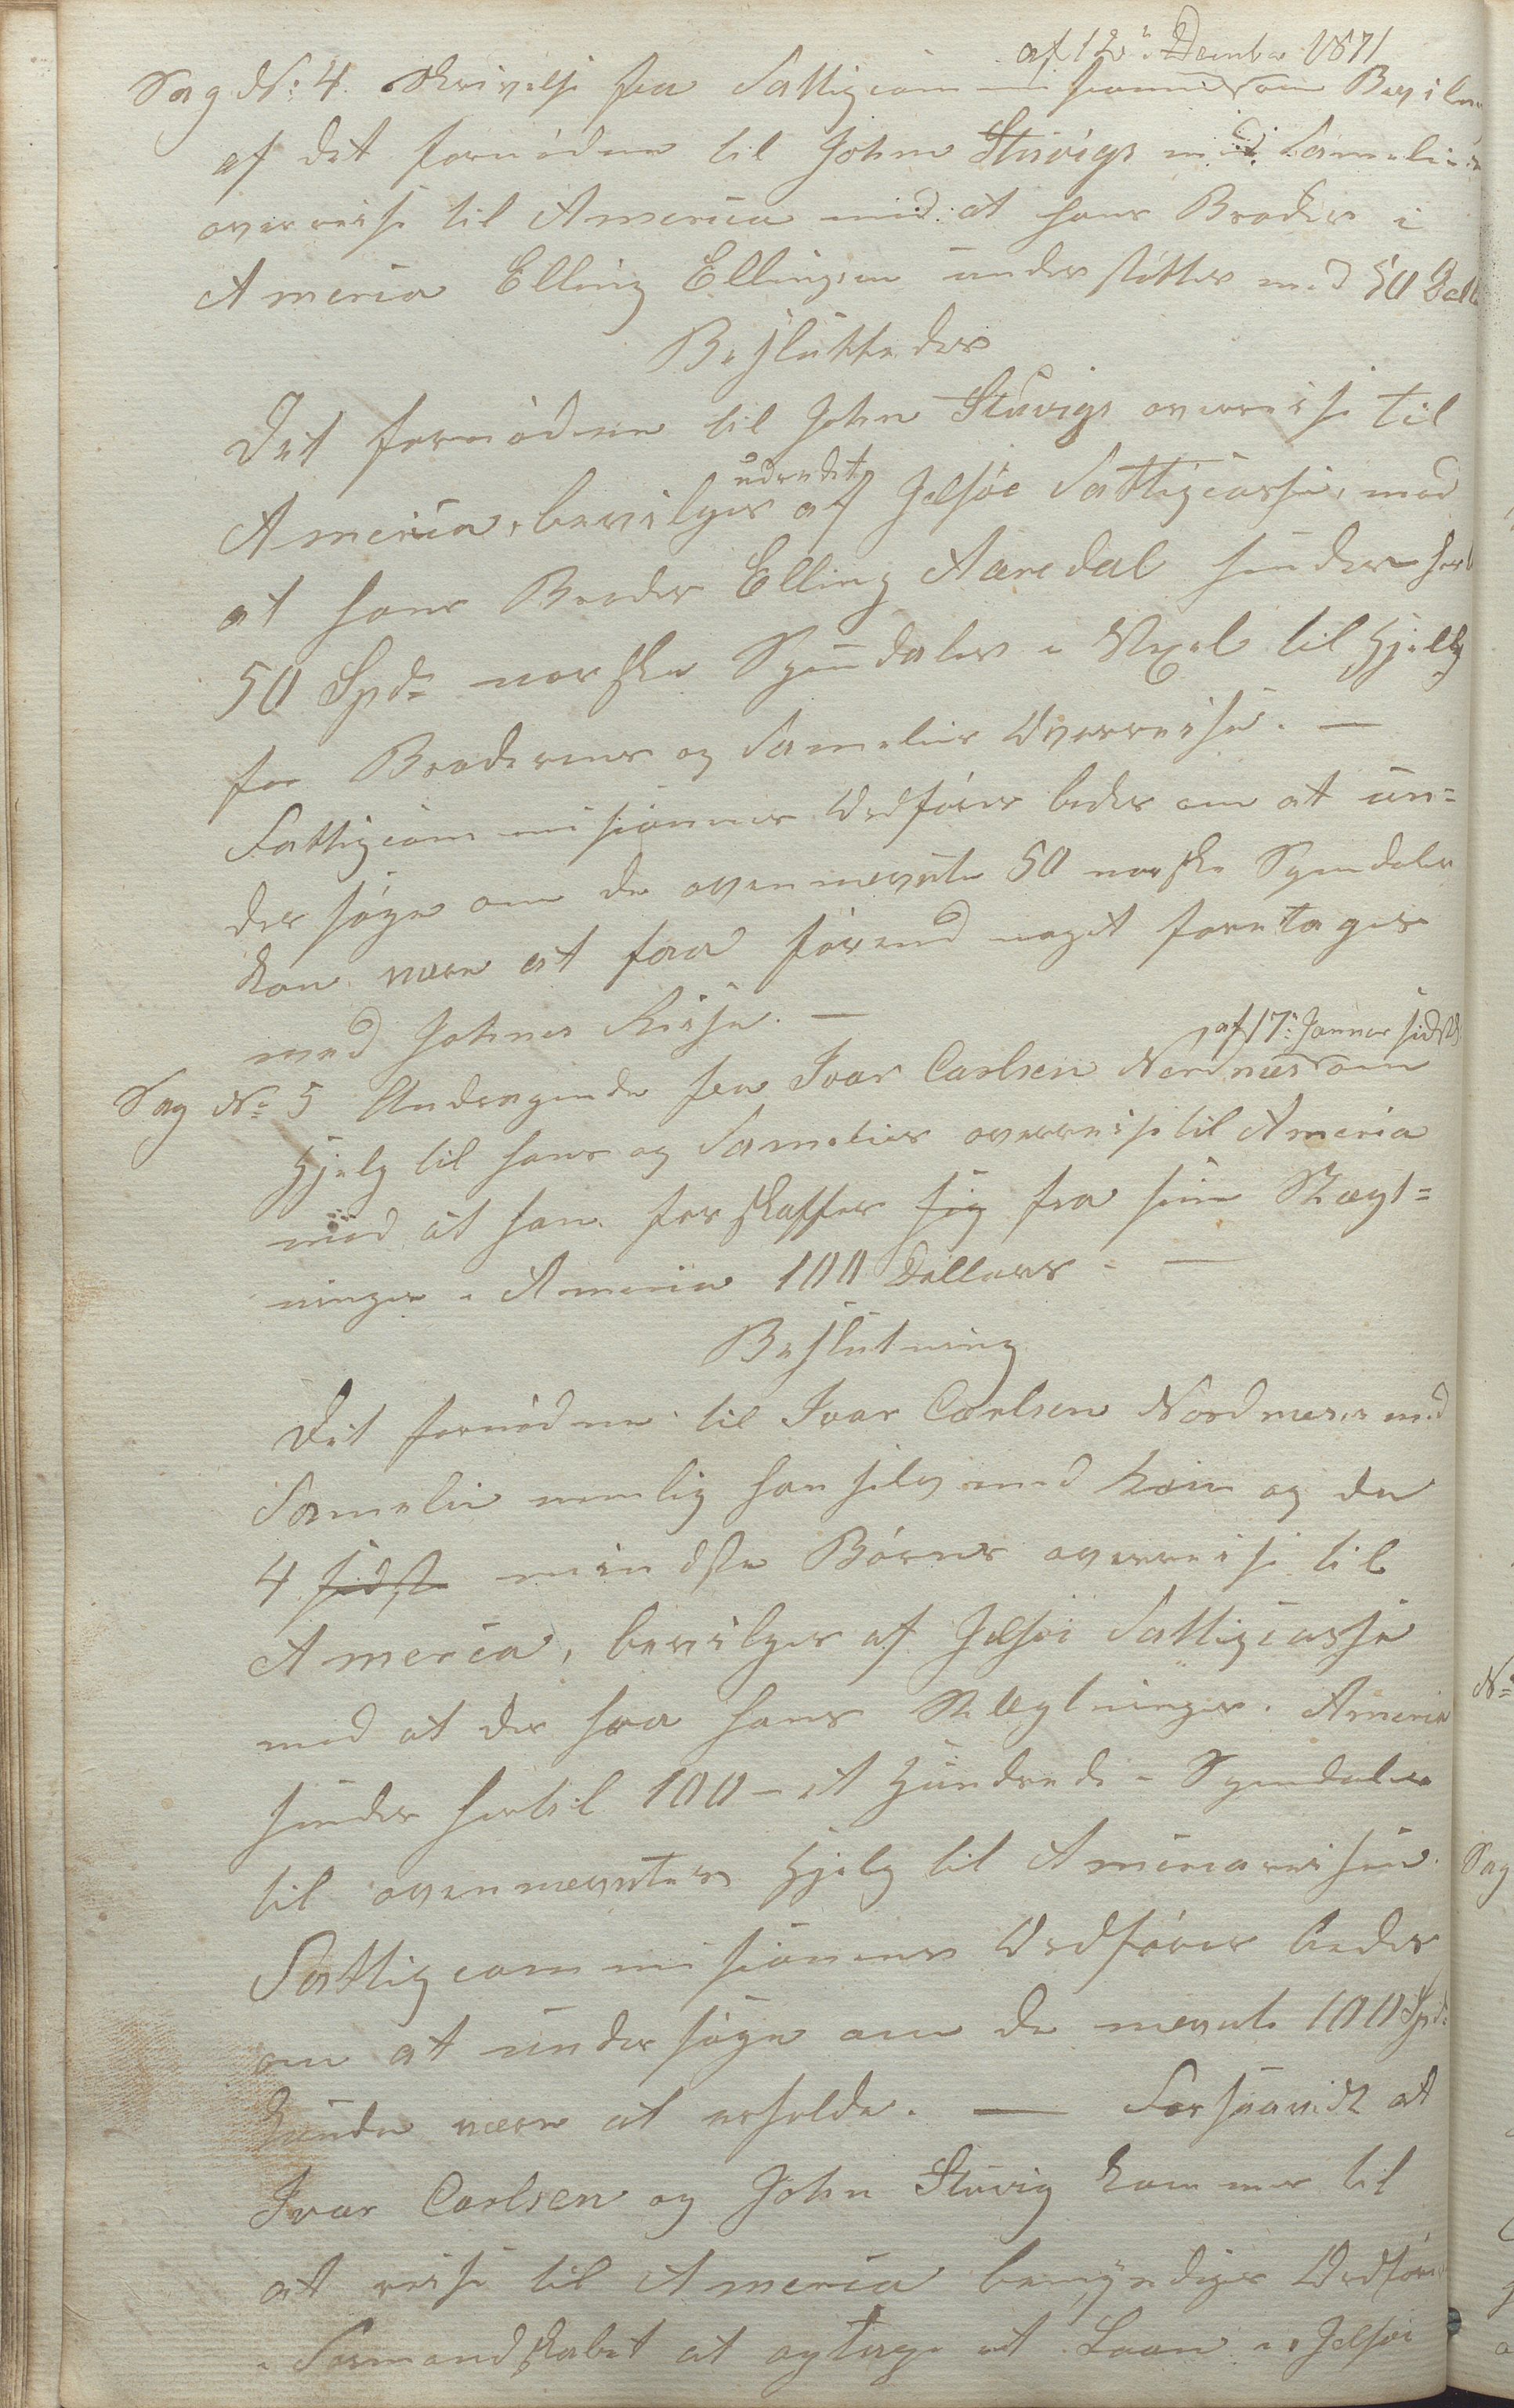 af 12te Decembr 1871
Sag No: 4. Skrivelse fra Fattigcommissionen om Bevilgn
af det fornödne til John Stuvigs med Famelies
overreise til America med at hans Broder i
America Elling Ellingsen understötter med 50 Dall
Besluttedes
Det fornödene til John Stuvigs overreise til
udredet
America, bevilges af Jelsöe Fattigcasse, med
at hans Broder Elling Aaredal sender her
50 Spd: norske Speciedaler i Vexel til Hjelp
for Broderens og Famelies Overreise. —
Fattigcommissionens Ordförer bedes om at un=
dersöge om de ovennævnte 50 norske Speciedaler
kan være at faa förend noget foretages
med Johnes Reise. —
, af 17: Januar sidstl.
Sag No: 5 Andragende fra Ivar Carlsen Nordnæs om
Hjelp til hans og Famelies overreise til America
med at han forskaffer sig fra sine Slægt=
ninger i America 100 Dollars. —
Beslutning
Det fornödne til Ivar Carlsen Nordnæs med
Famelie nemlig han selv med Kone og de
4 sidste mindste Börns overreise til
America, bevilges af Jelsöe Fattigcasse
med at der fra hans Slægtninger i America
sendes hertil 100 – et Hundrede – Speciedaler
til ovennævntes Hjelp til Americareisen.
Fattigcommissionens Ordförer bedes
om at undersöge om de nævnte 100 Spd:
kunde være at erholde. — Forsaavidt at
Ivar Carlsen og John Stuvig kommer til
at reise til America bemyndiges Ordföre
i Formandskabet at optage et Laan i Jelsöe